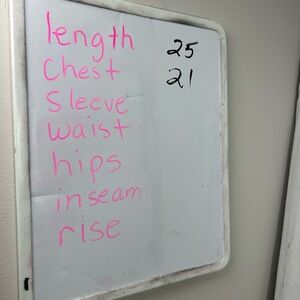 length 25
Chest 21
Sleeve
waist
hips
inseam
rise